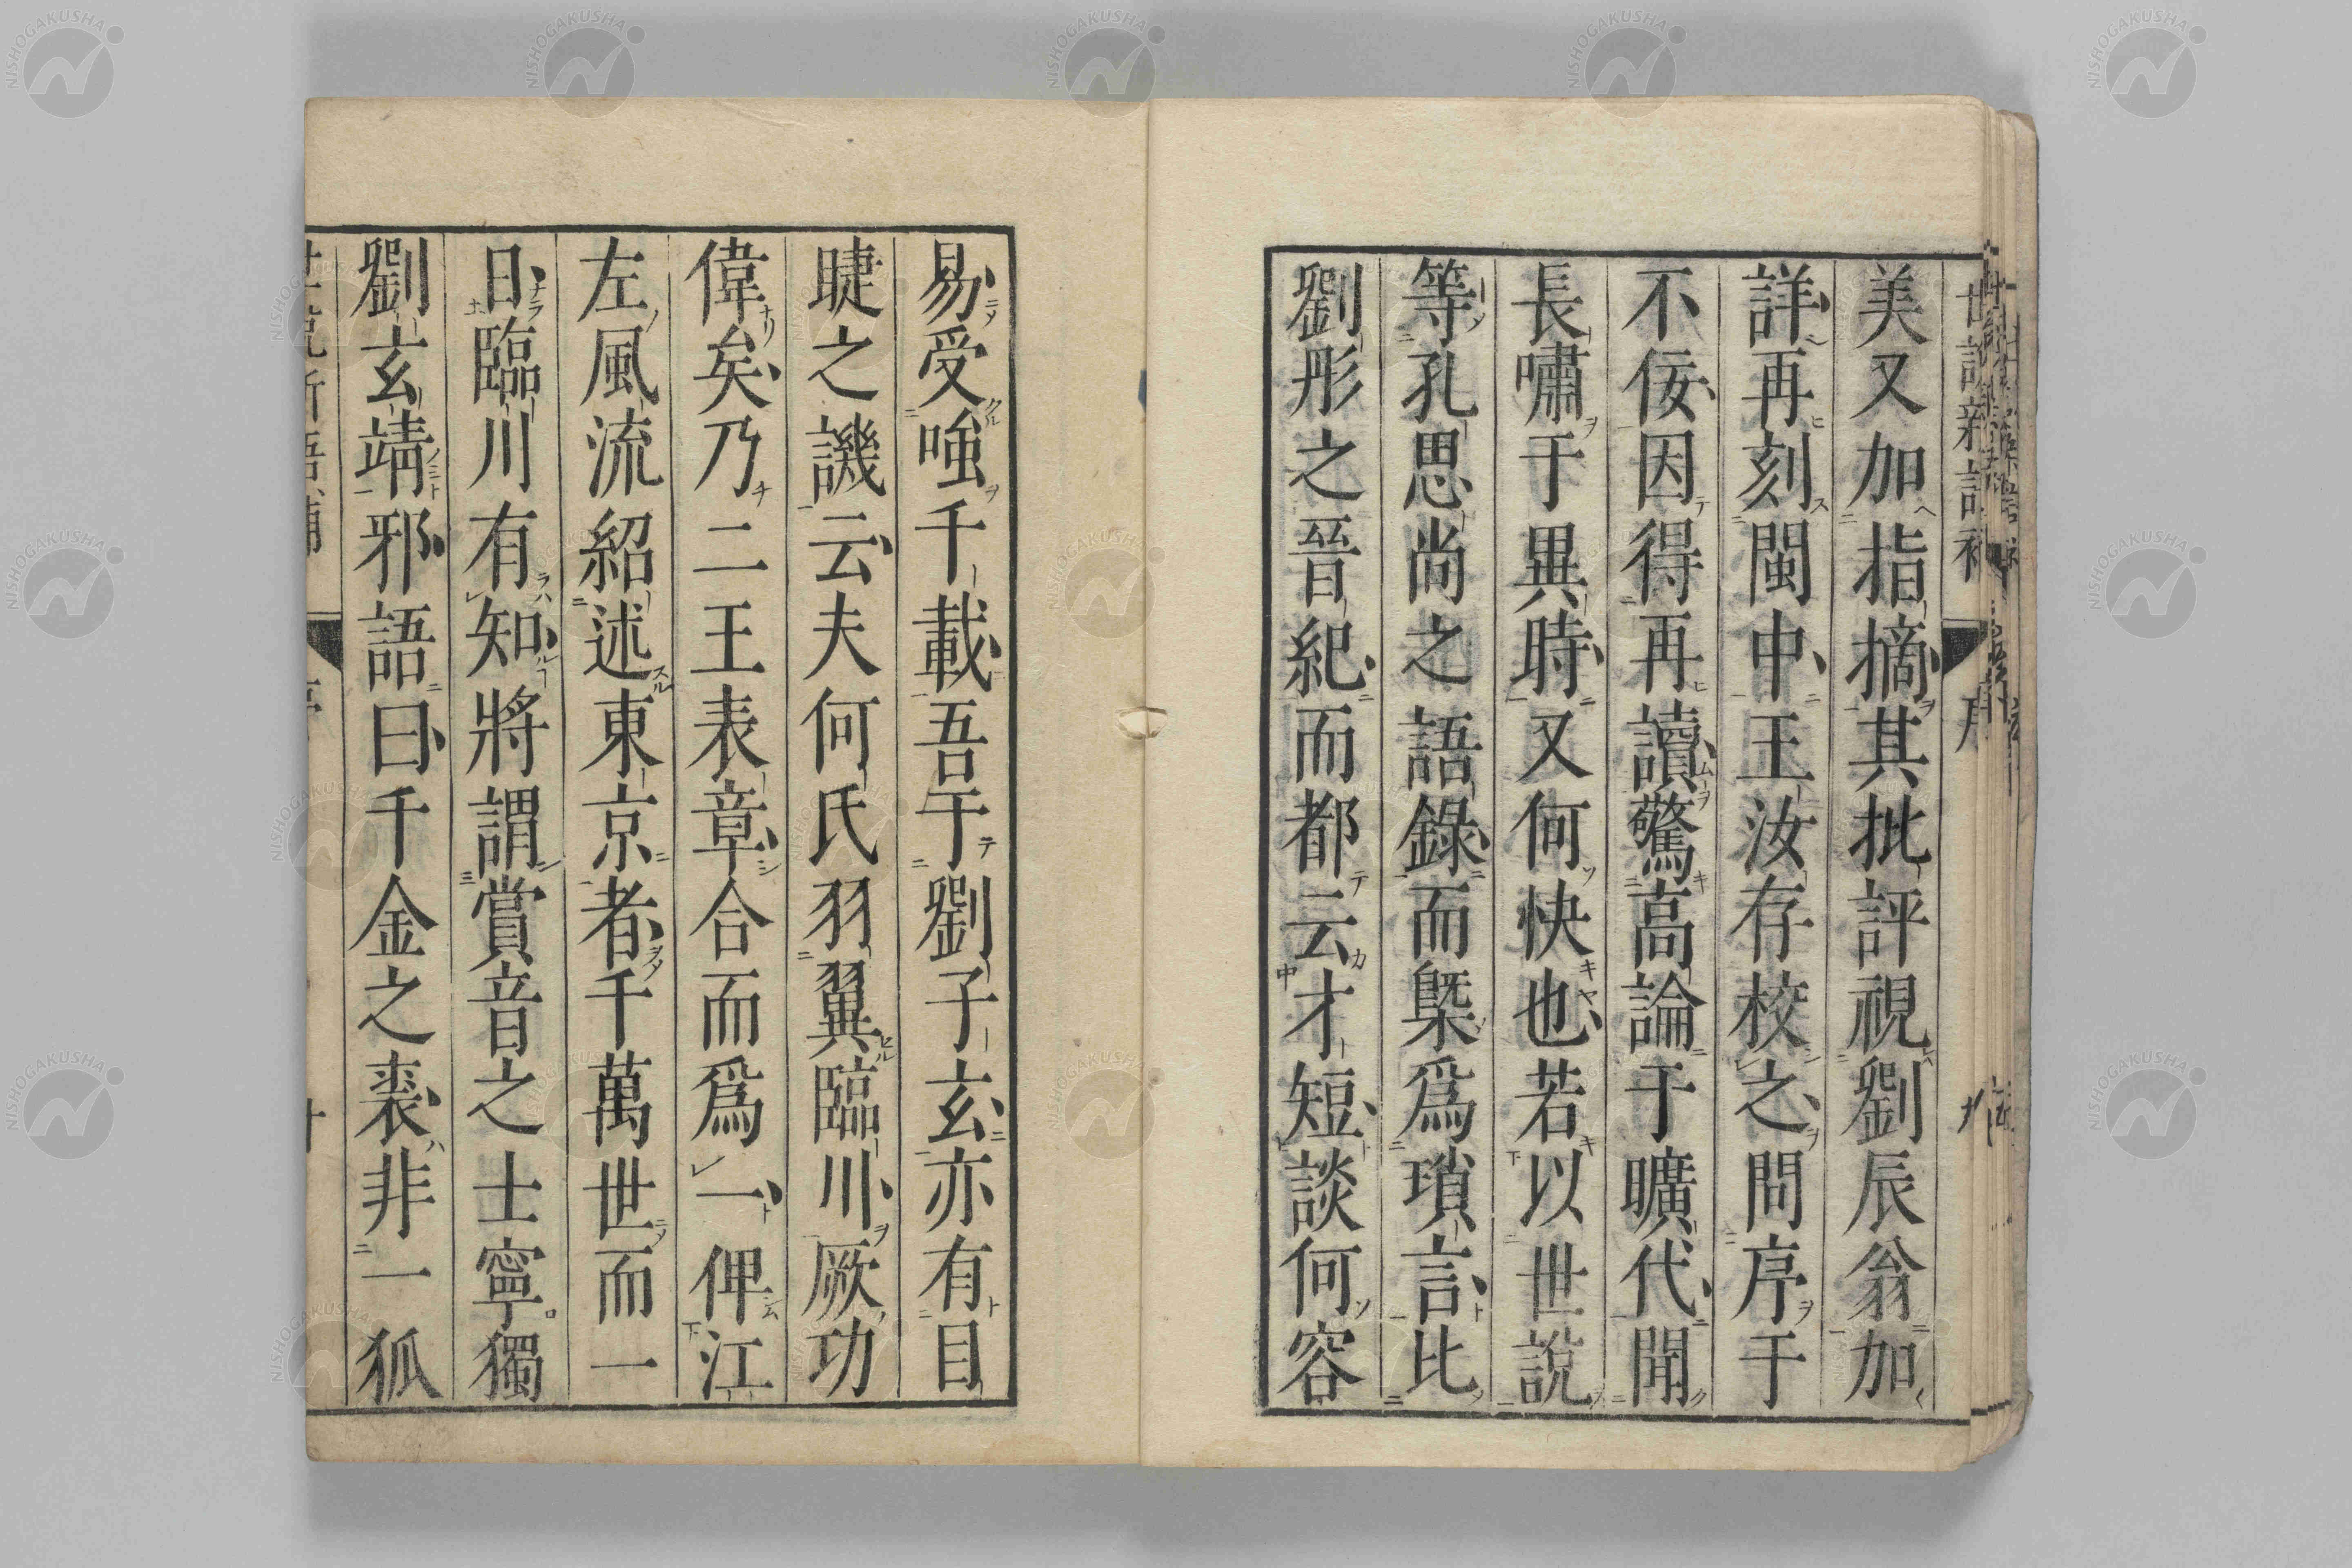 美又加指摘其批評視劉辰翁加
詳再刻閩中王汝存校之問序于
不佞因得再讀驚高論于曠代聞
長嘯于異時又何快也若以世說
等孔思尚之語錄而槩爲瑣言比
劉彤之晉紀而都云才短談何容
易受嗤千載吾于劉子玄亦有目
睫之譏云夫何氏羽翼臨川厥功
偉矣乃二王表章合而爲一俾江
左風流紹述東京者千萬世而一
日臨川有知將謂賞音之士寧獨
劉玄靖邪語曰千金之裘非一狐